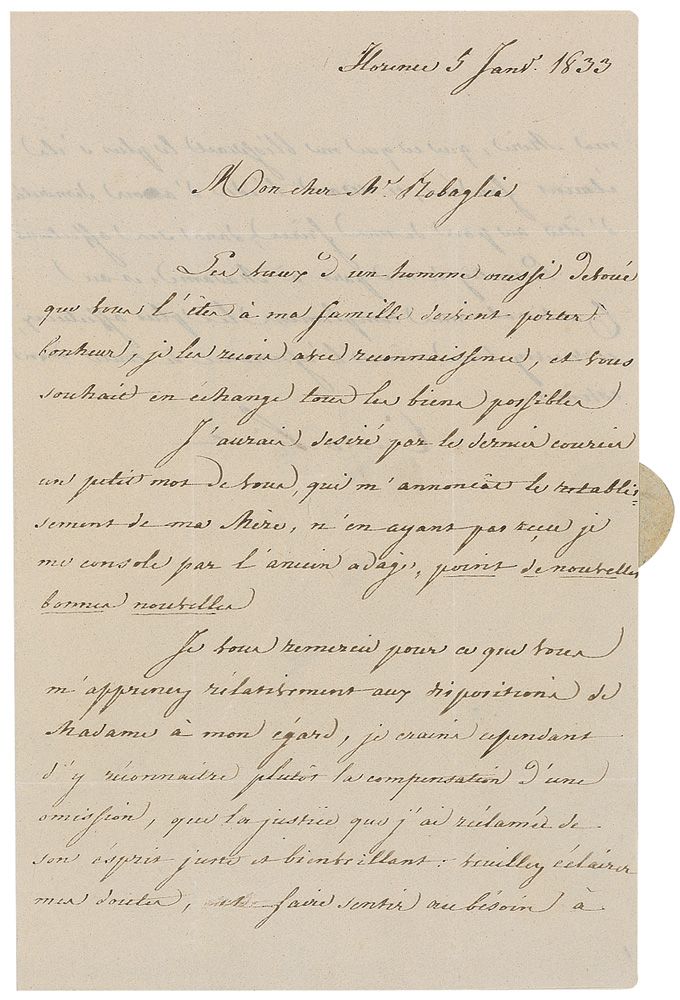 Florence 5 Janv. 1833
Mon cher Mr. Robaglia
Les vœux d'un homme aussi dévoué
que vous l'êtes à ma famille doivent porter
bonheur, je les reçois avec reconnaissence, et vous
souhait en échange tous les biens possibles
J'aurais desiré par le dernier courier
un petit mot de vous, qui m'annonçât le retablis=
sement de ma Mère, n'en ayant pas reçu je
me console par l'ancien adage, point de nouvelles
bonnes nouvelles
Je vous remercie pour ce que vous
m'apprenez rélativement aux dispositions de
Madame à mon égard, je crains cependant
d'y réconnaitre plutôt la compensation d'une
omission, que la justice que j'ai réclamée de
son esprit juste et bienveillant: veuillez éclairer
mes doutes, faire sentir au bésoin à